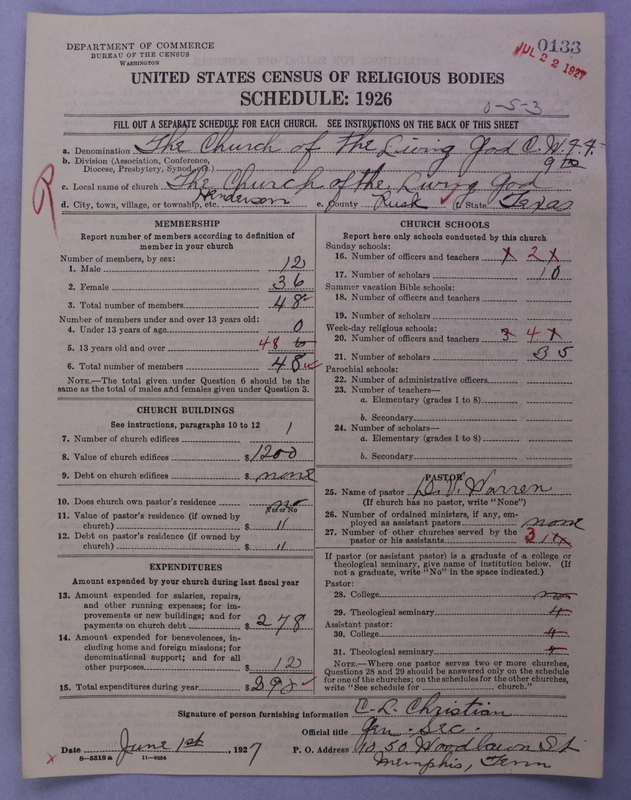 DEPARTMENT OF COMMERCE
BUREAU OF THE CENSUS
WASHINGTON
0133
JUL 22 1927
UNITED STATES CENSUS OF RELIGIOUS BODIES
SCHEDULE: 1926
0-5-3
FILL OUT A SEPARATE SCHEDULE FOR EACH CHURCH. SEE INSTRUCTIONS ON THE BACK OF THIS SHEET
a. Denomination The Church of the Living God C. W. F. F.
b. Division (Association, Conference, Diocese, Presbytery, Synod, etc.)
c. Local name of church The Church of the Living God
d. City, town, village, or township, etc. Henderson e. County Rusk (f. State) Texas
MEMBERSHIP
Report number of members according to definition of
member in your church
Number of members, by sex:
1. Male 12
2. Female 36
3. Total number of members 48
Number of members under and over 13 years old:
4. Under 13 years of age 0
5. 13 years old and over 48
6. Total number of members 48
NOTE.—The total given under Question 6 should be the
same as the total of males and females given under Question 3.
CHURCH BUILDINGS
See instructions, paragraphs 10 to 12
7. Number of church edifices 1
8. Value of church edifices $ 1200
9. Debt on church edifices $ none
10. Does church own pastor's residence no
Yes or No
11. Value of pastor's residence (if owned by
church) $ "
12. Debt on pastor's residence (if owned by
church) $ "
EXPENDITURES
Amount expended by your church during last fiscal year
13. Amount expended for salaries, repairs,
and other running expenses; for im-
provements or new buildings; and for
payments on church debt $ 278
14. Amount expended for benevolences, in-
cluding home and foreign missions; for
denominational support; and for all
other purposes $ 12
15. Total expenditures during year $
CHURCH SCHOOLS
Report here only schools conducted by this church
Sunday schools:
16. Number of officers and teachers 2
17. Number of scholars 10
Summer vacation Bible schools:
18. Number of officers and teachers
19. Number of scholars
Week-day religious schools:
20. Number of officers and teachers 3 4
21. Number of scholars 35
Parochial schools:
22. Number of administrative officers
23. Number of teachers—
a. Elementary (grades 1 to 8)
b. Secondary
24. Number of scholars—
a. Elementary (grades 1 to 8)
b. Secondary
PASTOR
25. Name of pastor D. V. Warren
(If church has no pastor, write "None")
26. Number of ordained ministers, if any, em-
ployed as assistant pastors none
27. Number of other churches served by the
pastor or his assistants 3
If pastor (or assistant pastor) is a graduate of a college or
theological seminary, give name of institution below. (If
not a graduate, write "No" in the space indicated.)
Pastor:
28. College no
29. Theological seminary "
Assistant pastor:
30. College "
31. Theological seminary "
NOTE.—Where one pastor serves two or more churches,
Questions 28 and 29 should be answered only on the schedule
for one of the churches; on the schedules for the other churches,
write "See schedule for church."
Signature of person furnishing information C. L. Christian
Official title Gen. Sec.
Date June 1st, 1927 P. O. Address 10,50 Woodlawn St
8—5518a 11—9034 Memphis, Tenn